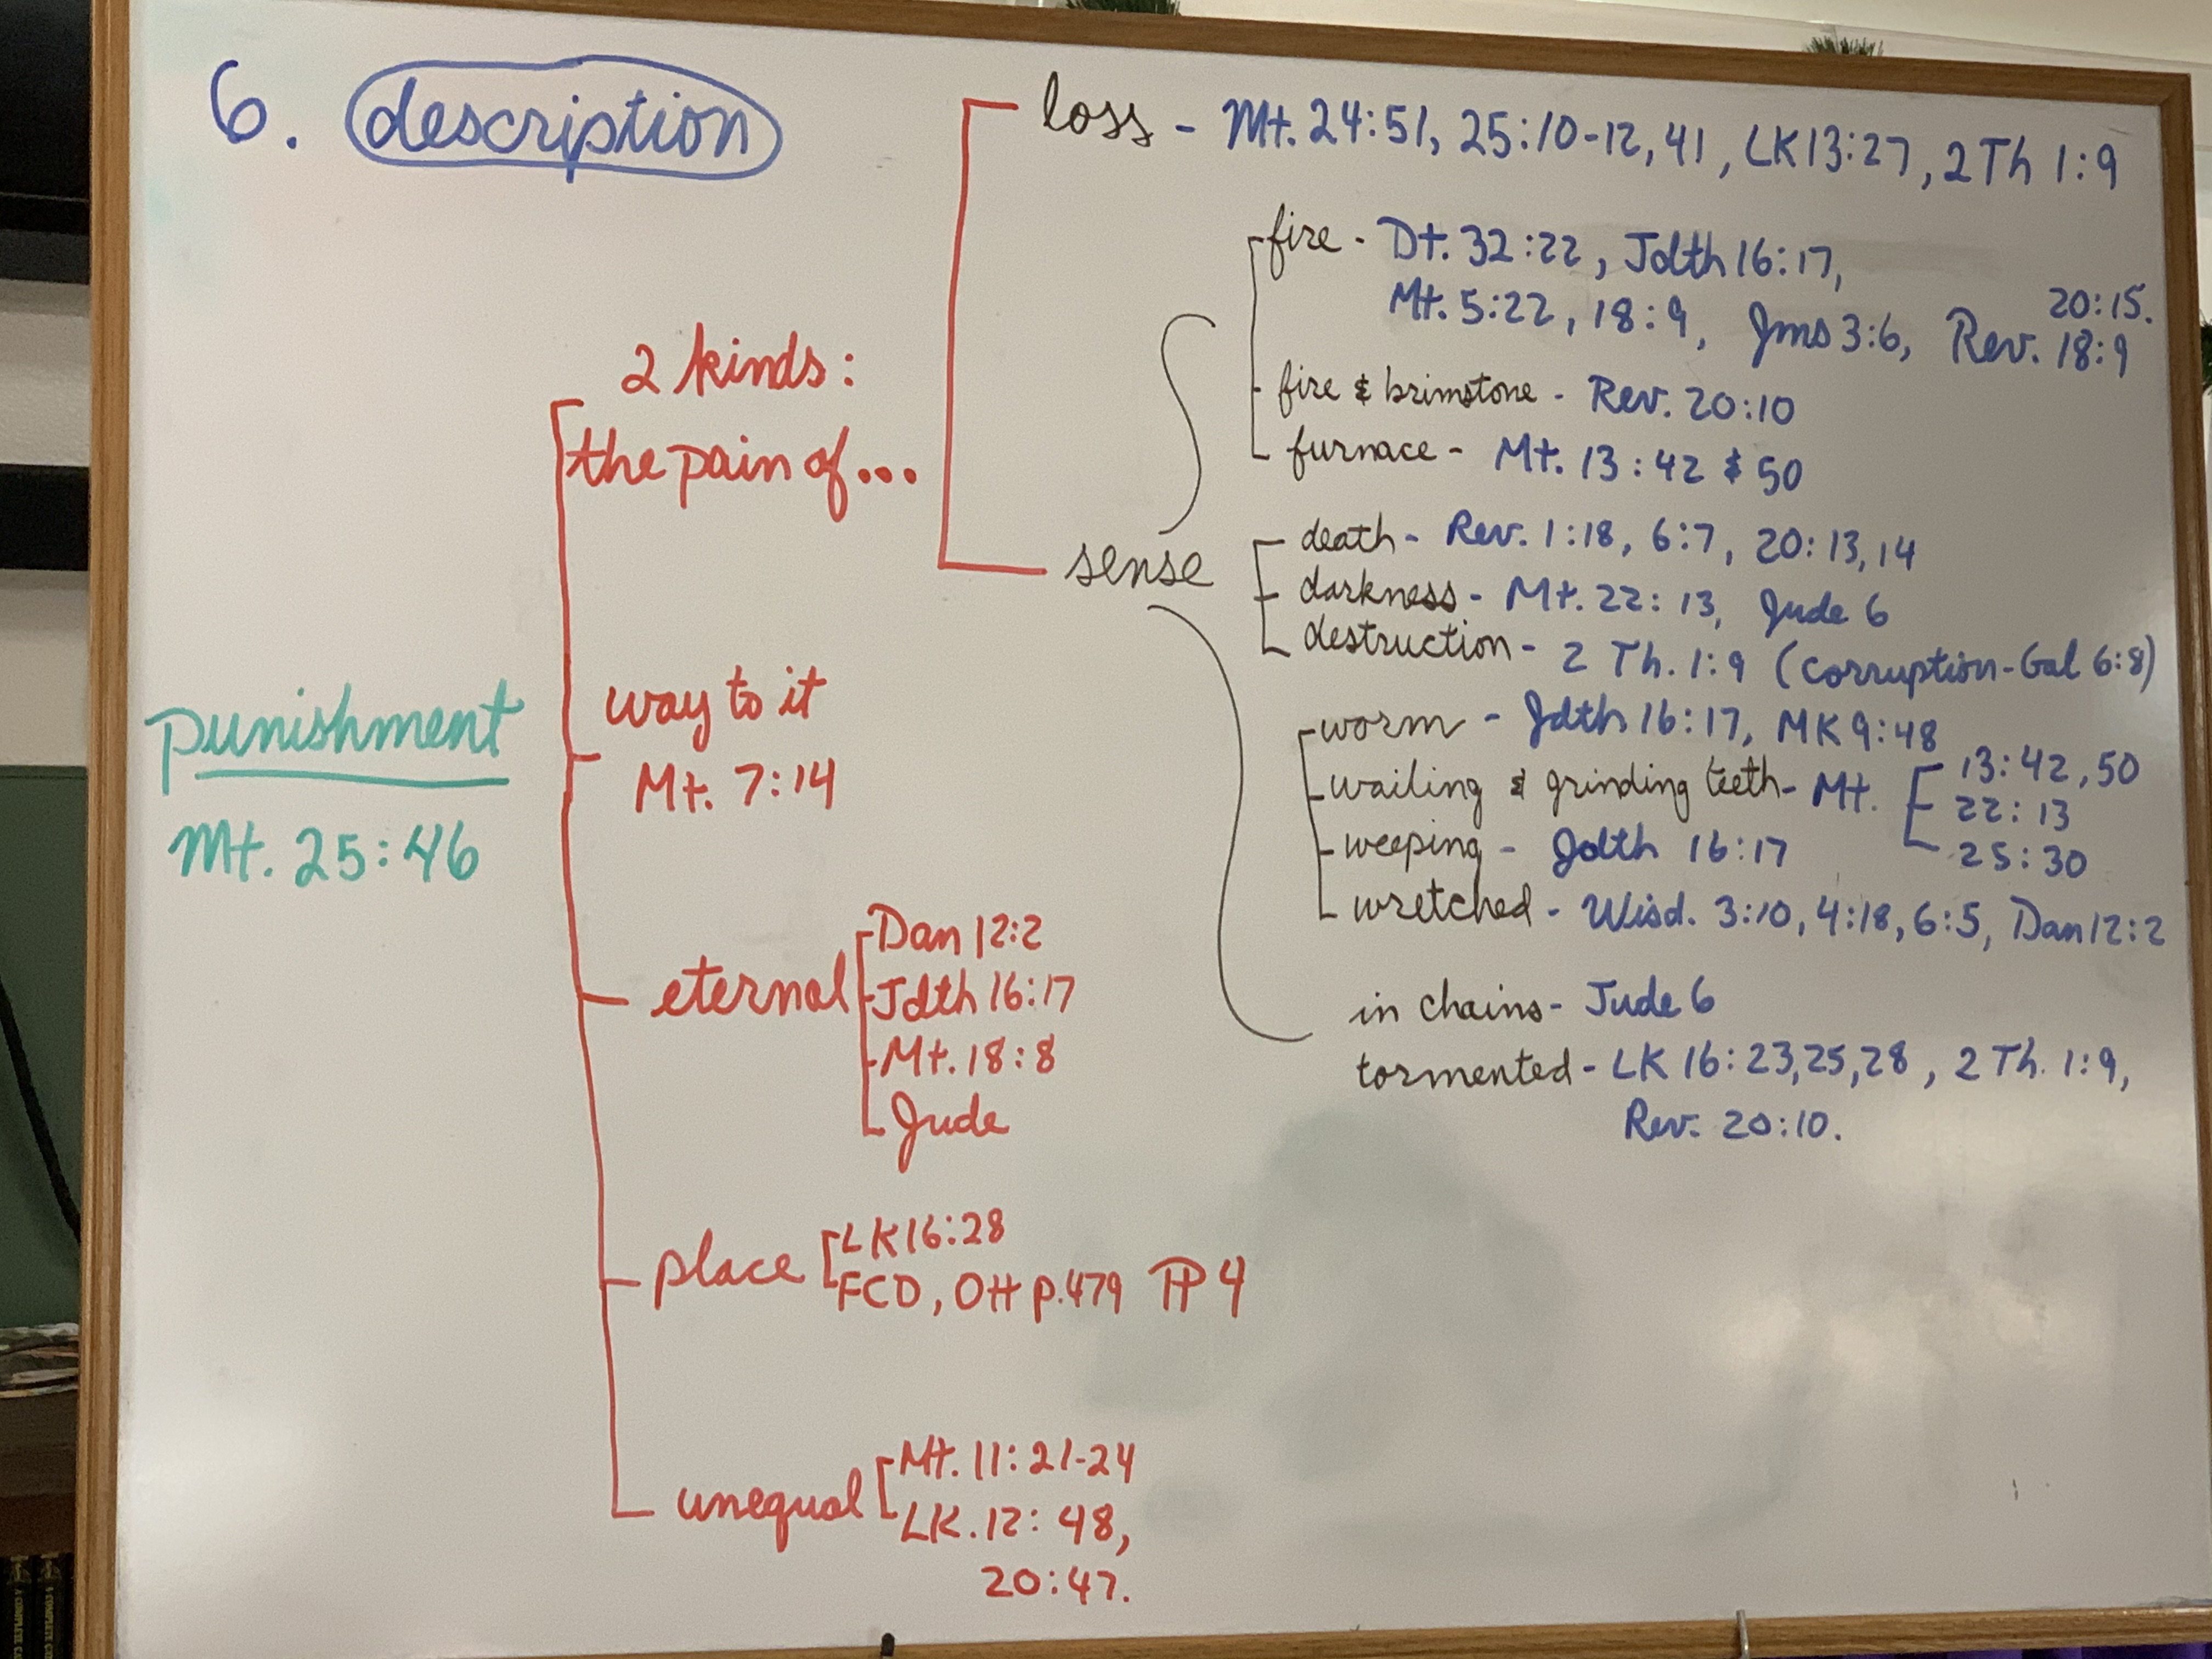 6. description
punishment
Mt. 25:46
2 kinds:
the pain of...
loss - Mt. 24:51, 25:10-12, 41, LK 13:27, 2 Th 1:9
sense
fire - Dt. 32:22, Jdth 16:17,
Mt. 5:22, 18:9, Jms 3:6, Rev. 18:9
20:15.
fire & brimstone - Rev. 20:10
furnace - Mt. 13:42 & 50
death - Rev. 1:18, 6:7, 20:13,14
darkness - Mt. 22:13, Jude 6
destruction - 2 Th. 1:9 (corruption-Gal 6:8)
worm - Jdth 16:17, MK 9:48
wailing & grinding teeth - Mt. 13:42, 50
22:13
25:30
weeping - Jdth 16:17
wretched - Wisd. 3:10, 4:18, 6:5, Dan 12:2
in chains - Jude 6
tormented - LK 16:23,25,28, 2 Th. 1:9,
Rev. 20:10.
way to it
Mt. 7:14
eternal
Dan 12:2
Jdth 16:17
Mt. 18:8
Jude
place
LK 16:28
FCD, Ott p.479 PP 4
unequal
Mt. 11:21-24
LK. 12:48,
20:47.